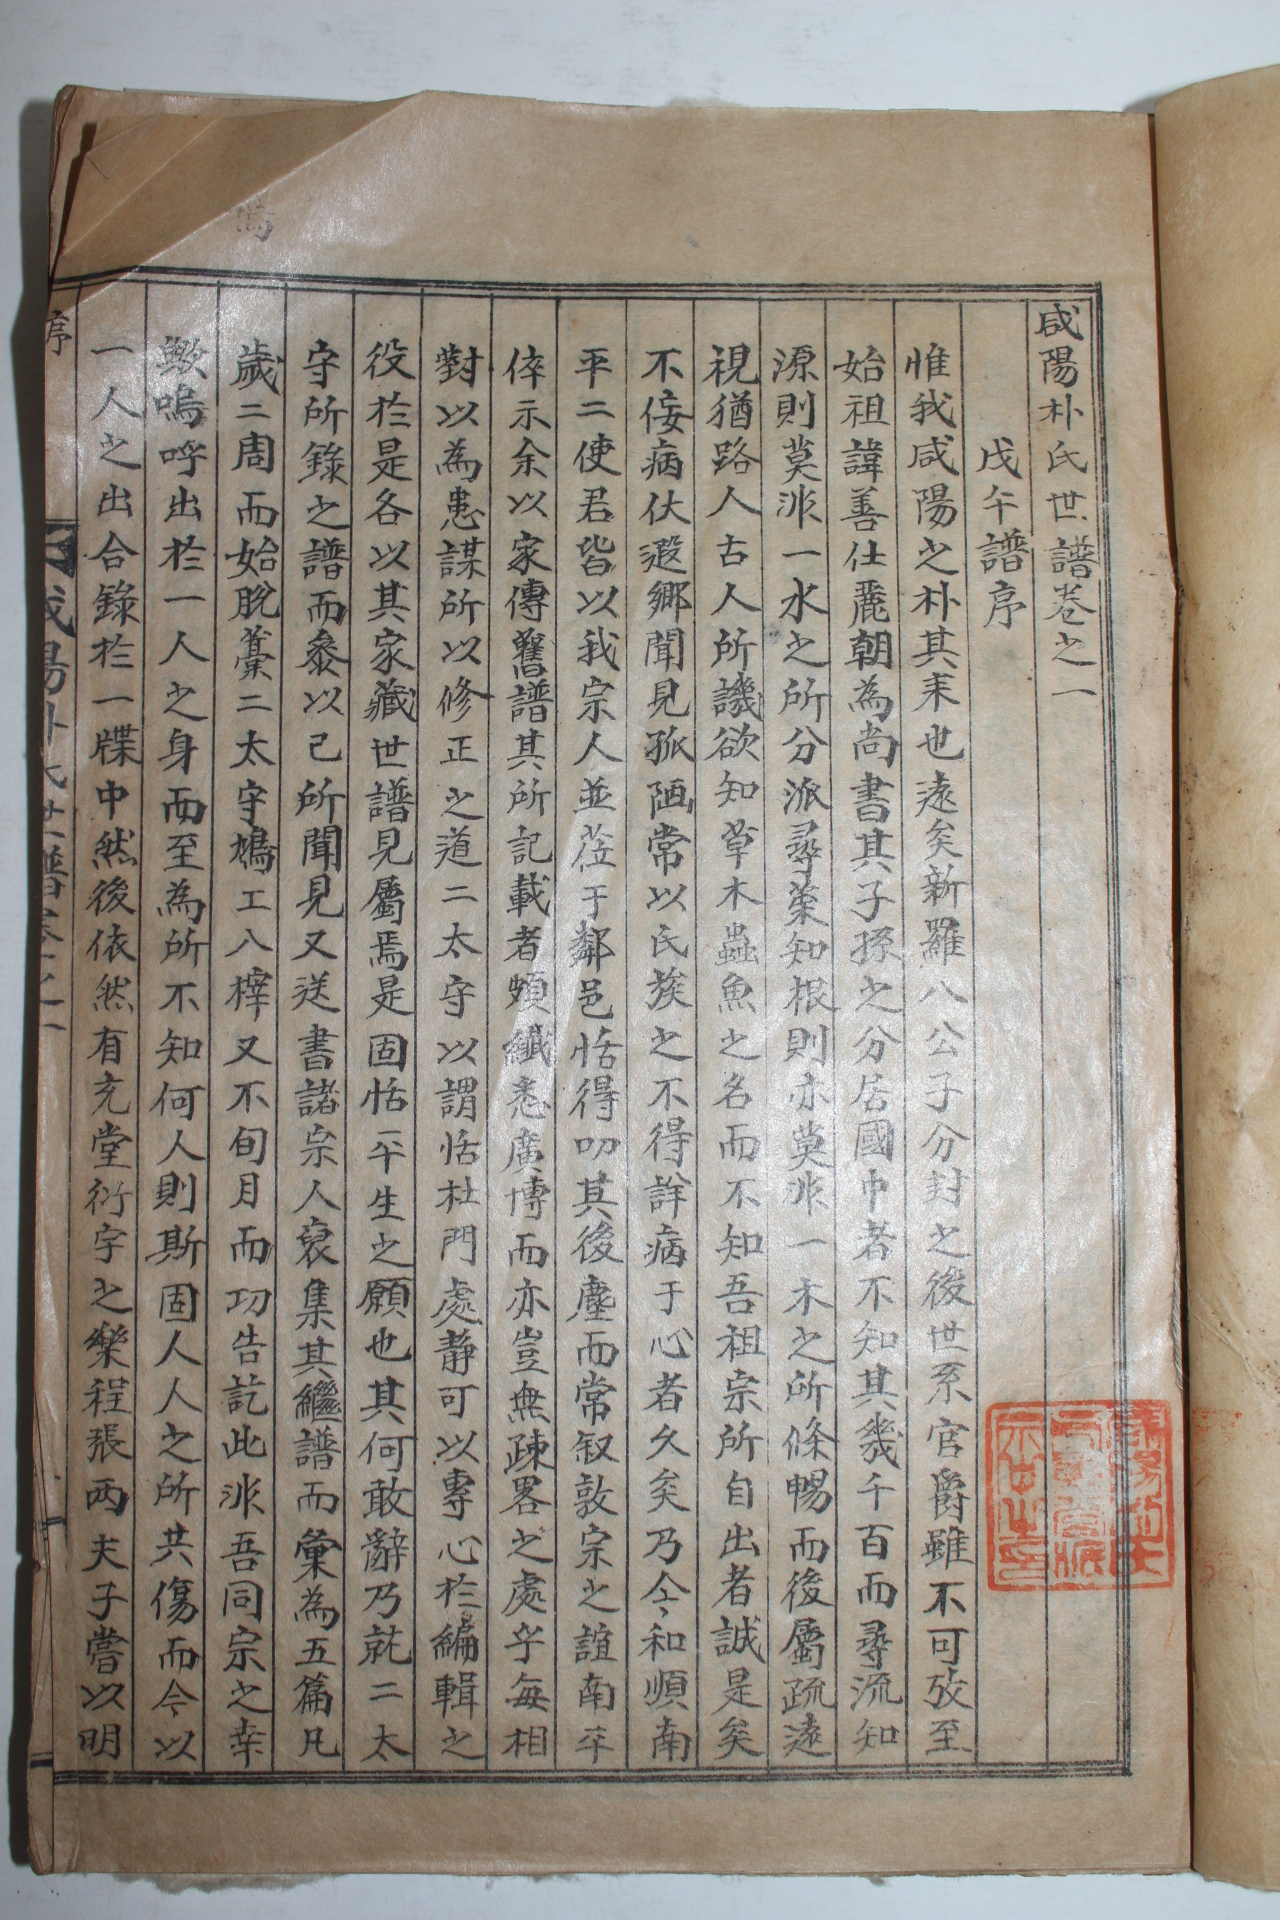 咸陽朴氏世譜卷之一
戊午譜序
惟我咸陽之朴其来也遠矣新羅八公子分封之後世系官爵雖不可攷至
始祖諱善仕麗朝為尚書其子孫之分居國中者不知其幾千百而尋流知
源則莫非一水之所分派尋葉知根則亦莫非一木之所條暢而後屬疏遠
視猶路人古人所譏欲知草木蟲魚之名而不知吾祖宗所自出者誠是矣
不佞病伏遐鄉聞見孤陋常以氏族之不得詳病于心者久矣乃今和順南
平二使君皆以我宗人並莅于鄰邑恬得叨其後塵而常叙敦宗之誼南平
倅示余以家傳舊譜其所記載者頗纖悉廣博而亦豈無疎畧之處乎每相
對以為患謀所以修正之道二太守以謂恬杜門處靜可以專心於編輯之
役於是各以其家藏世譜見屬焉是固恬平生之願也其何敢辭乃就二太
守所錄之譜而叅以己所聞見又送書諸宗人裒集其繼譜而彙為五篇凡
歲二周而始脫藁二太守鳩工八梓又不旬月而功告訖此非吾同宗之幸
歟嗚呼出於一人之身而至為所不知何人則斯固人人之所共傷而今以
一人之出合錄於一牒中然後依然有充堂衎宇之樂程張兩夫子嘗以明
序
咸陽朴氏世譜卷之一